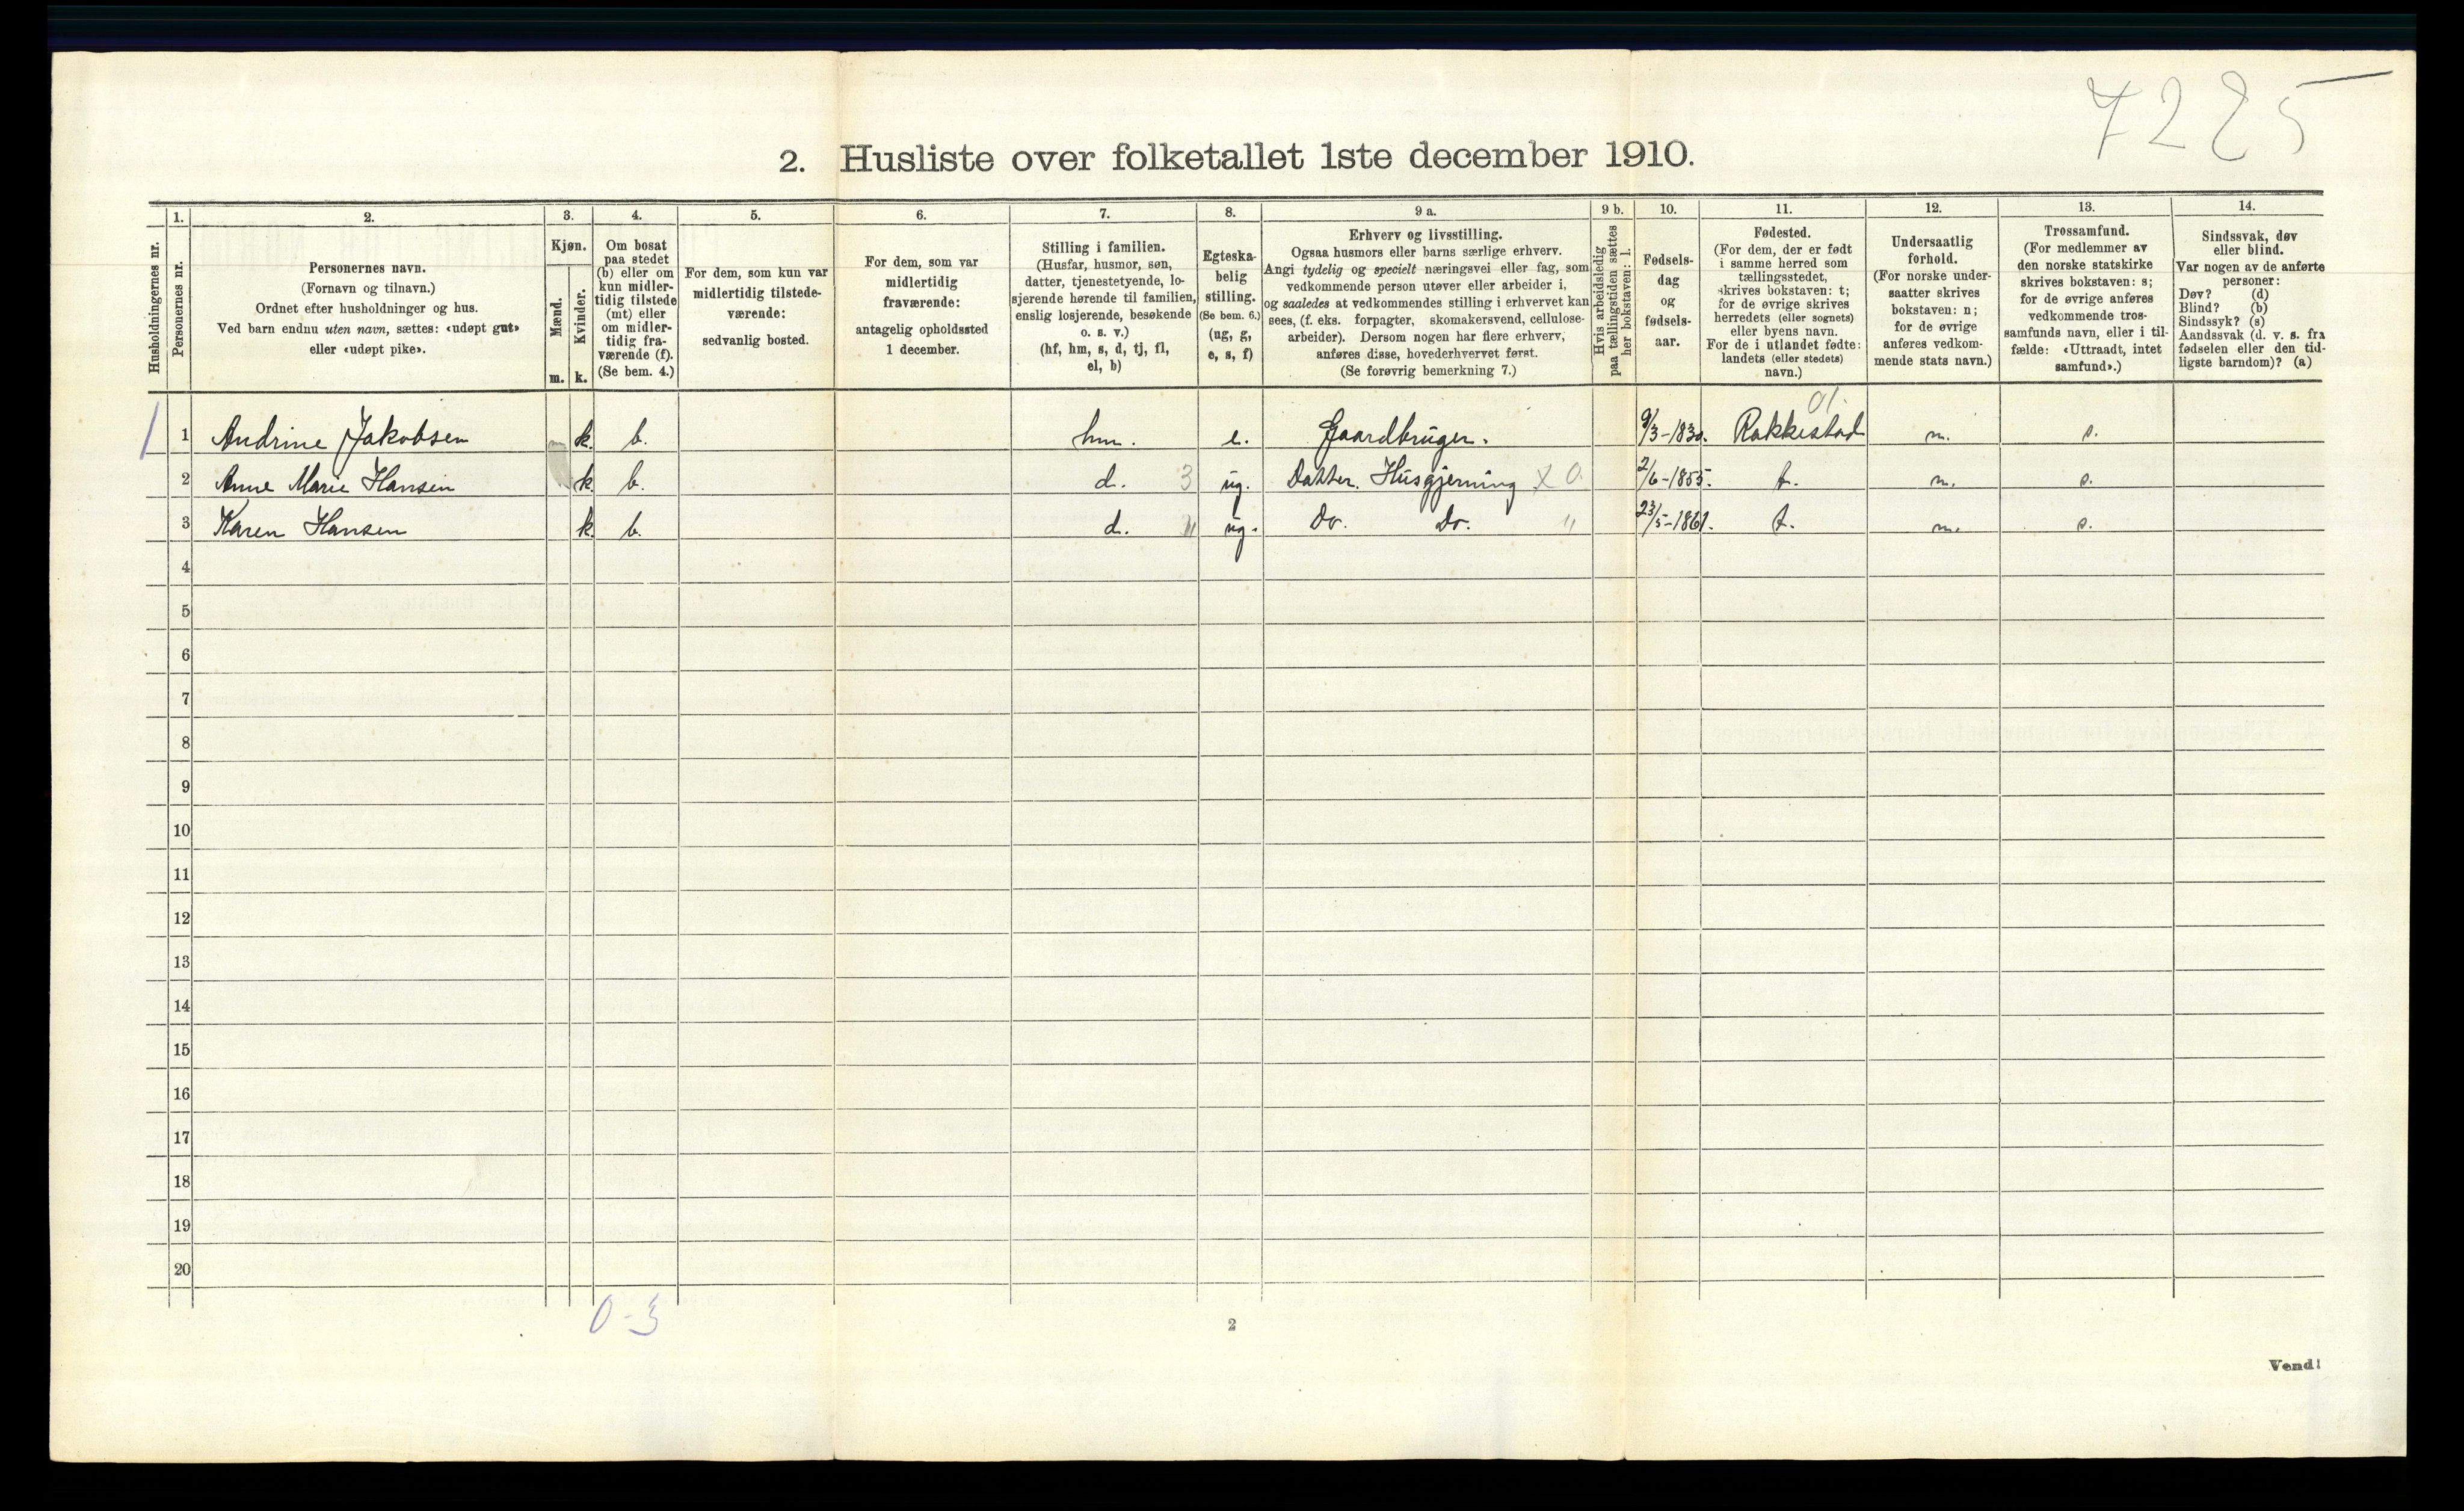 7225
2. Husliste over folketallet 1ste december 1910.
Husholdningernes nr.
1.
Personernes nr.
2.
Personernes navn.
(Fornavn og tilnavn.)
Ordnet efter husholdninger og hus.
Ved barn endnu uten navn, sættes: «udøpt gut»
eller «udøpt pike».
3.
Kjøn.
Mænd.
m.
Kvinder.
k.
4.
Om bosat
paa stedet
(b) eller om
kun midler-
tidig tilstede
(mt) eller
om midler-
tidig fra-
værende (f).
(Se bem. 4.)
5.
For dem, som kun var
midlertidig tilstede-
værende:
sedvanlig bosted.
6.
For dem, som var
midlertidig
fraværende:
antagelig opholdssted
1 december.
7.
Stilling i familien.
(Husfar, husmor, søn,
datter, tjenestetyende, lo-
sjerende hørende til familien,
enslig losjerende, besøkende
o. s. v.)
(hf, hm, s, d, tj, fl,
el, b)
8.
Egteska-
belig
stilling.
(Se bem. 6.)
(ug, g,
e, s, f)
9 a.
Erhverv og livsstilling.
Ogsaa husmors eller barns særlige erhverv.
Angi tydelig og specielt næringsvei eller fag, som
vedkommende person utøver eller arbeider i,
og saaledes at vedkommendes stilling i erhvervet kan
sees, (f. eks. forpagter, skomakersvend, cellulose-
arbeider). Dersom nogen har flere erhverv,
anføres disse, hovederhvervet først.
(Se forøvrig bemerkning 7.)
9 b.
Hvis arbeidsledig
paa tællingstiden sættes
her bokstaven: l.
10.
Fødsels-
dag
og
fødsels-
aar.
11.
Fødested.
(For dem, der er født
i samme herred som
tællingsstedet,
skrives bokstaven: t;
for de øvrige skrives
herredets (eller sognets)
eller byens navn.
For de i utlandet fødte:
landets (eller stedets)
navn.)
12.
Undersaatlig
forhold.
(For norske under-
saatter skrives
bokstaven: n;
for de øvrige
anføres vedkom-
mende stats navn.)
13.
Trossamfund.
(For medlemmer av
den norske statskirke
skrives bokstaven: s;
for de øvrige anføres
vedkommende tros-
samfunds navn, eller i til-
fælde: «Uttraadt, intet
samfund».)
14.
Sindssvak, døv
eller blind.
Var nogen av de anførte
personer:
Døv? (d)
Blind? (b)
Sindssyk? (s)
Aandssvak (d. v. s. fra
fødselen eller den tid-
ligste barndom)? (a)
01.
1 1 Andrine Jakobsen k. b. hm. e. Gaardbruger. 9/3-1830. Rakkestad n. s.
2 Anne Marie Hansen k. b. d. 3 ug. Datter. Husgjerning X 0. 2/6-1855. t. n. s.
3 Karen Hansen k. b. d. " ug. Do. Do. " 23/5-1861. t. n. s.
4
5
6
7
8
9
10
11
12
13
14
15
16
17
18
19
20
0-3
2
Vend!